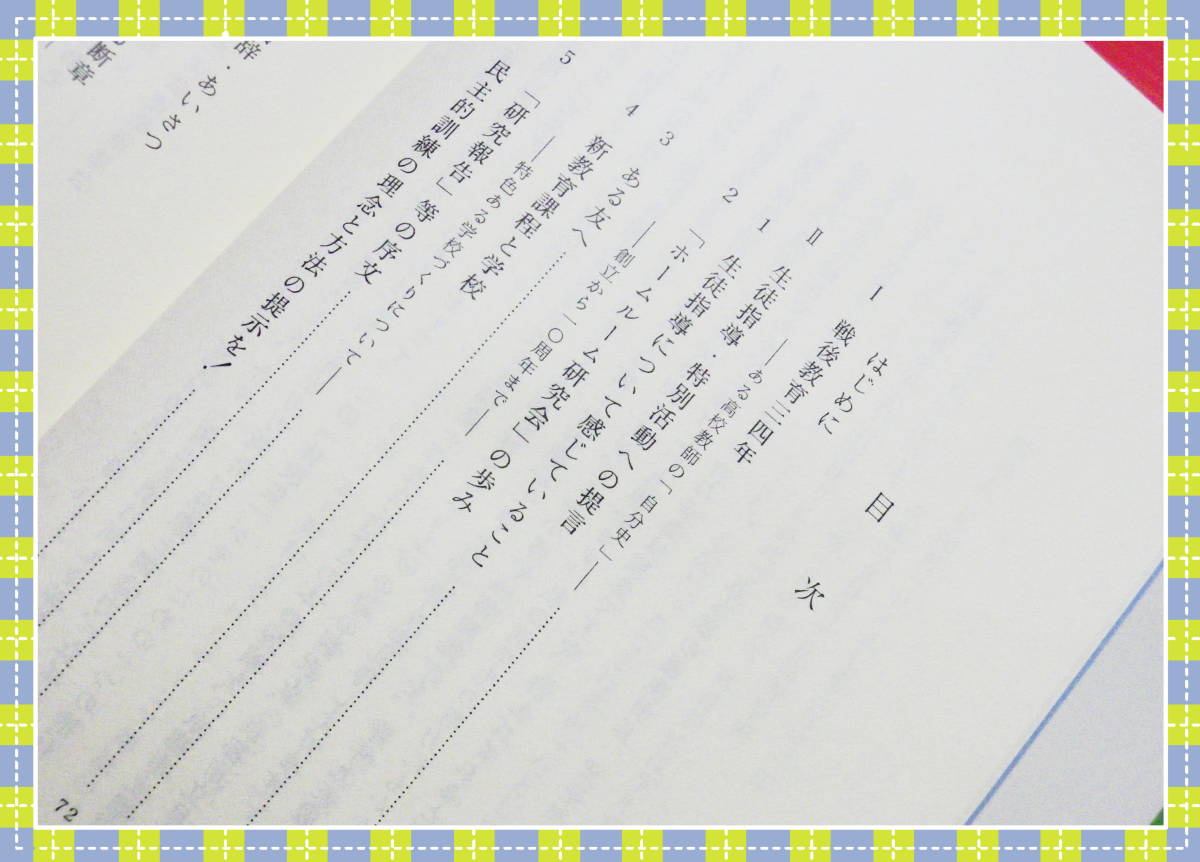 目次
はじめに
Ⅰ 戦後教育三四年
――ある高校教師の「自分史」――
Ⅱ 生徒指導
1 生徒指導・特別活動への提言
ホームルームについて感じていること
2 「ホームルーム研究会」の歩み
――創立から一〇周年まで――
3 ある友へ
4 新教育課程と学校
――特色ある学校づくりについて――
5 「研究報告」等の序文
民主的訓練の理念と方法の提示を!
72
辞・あいさつ
断章